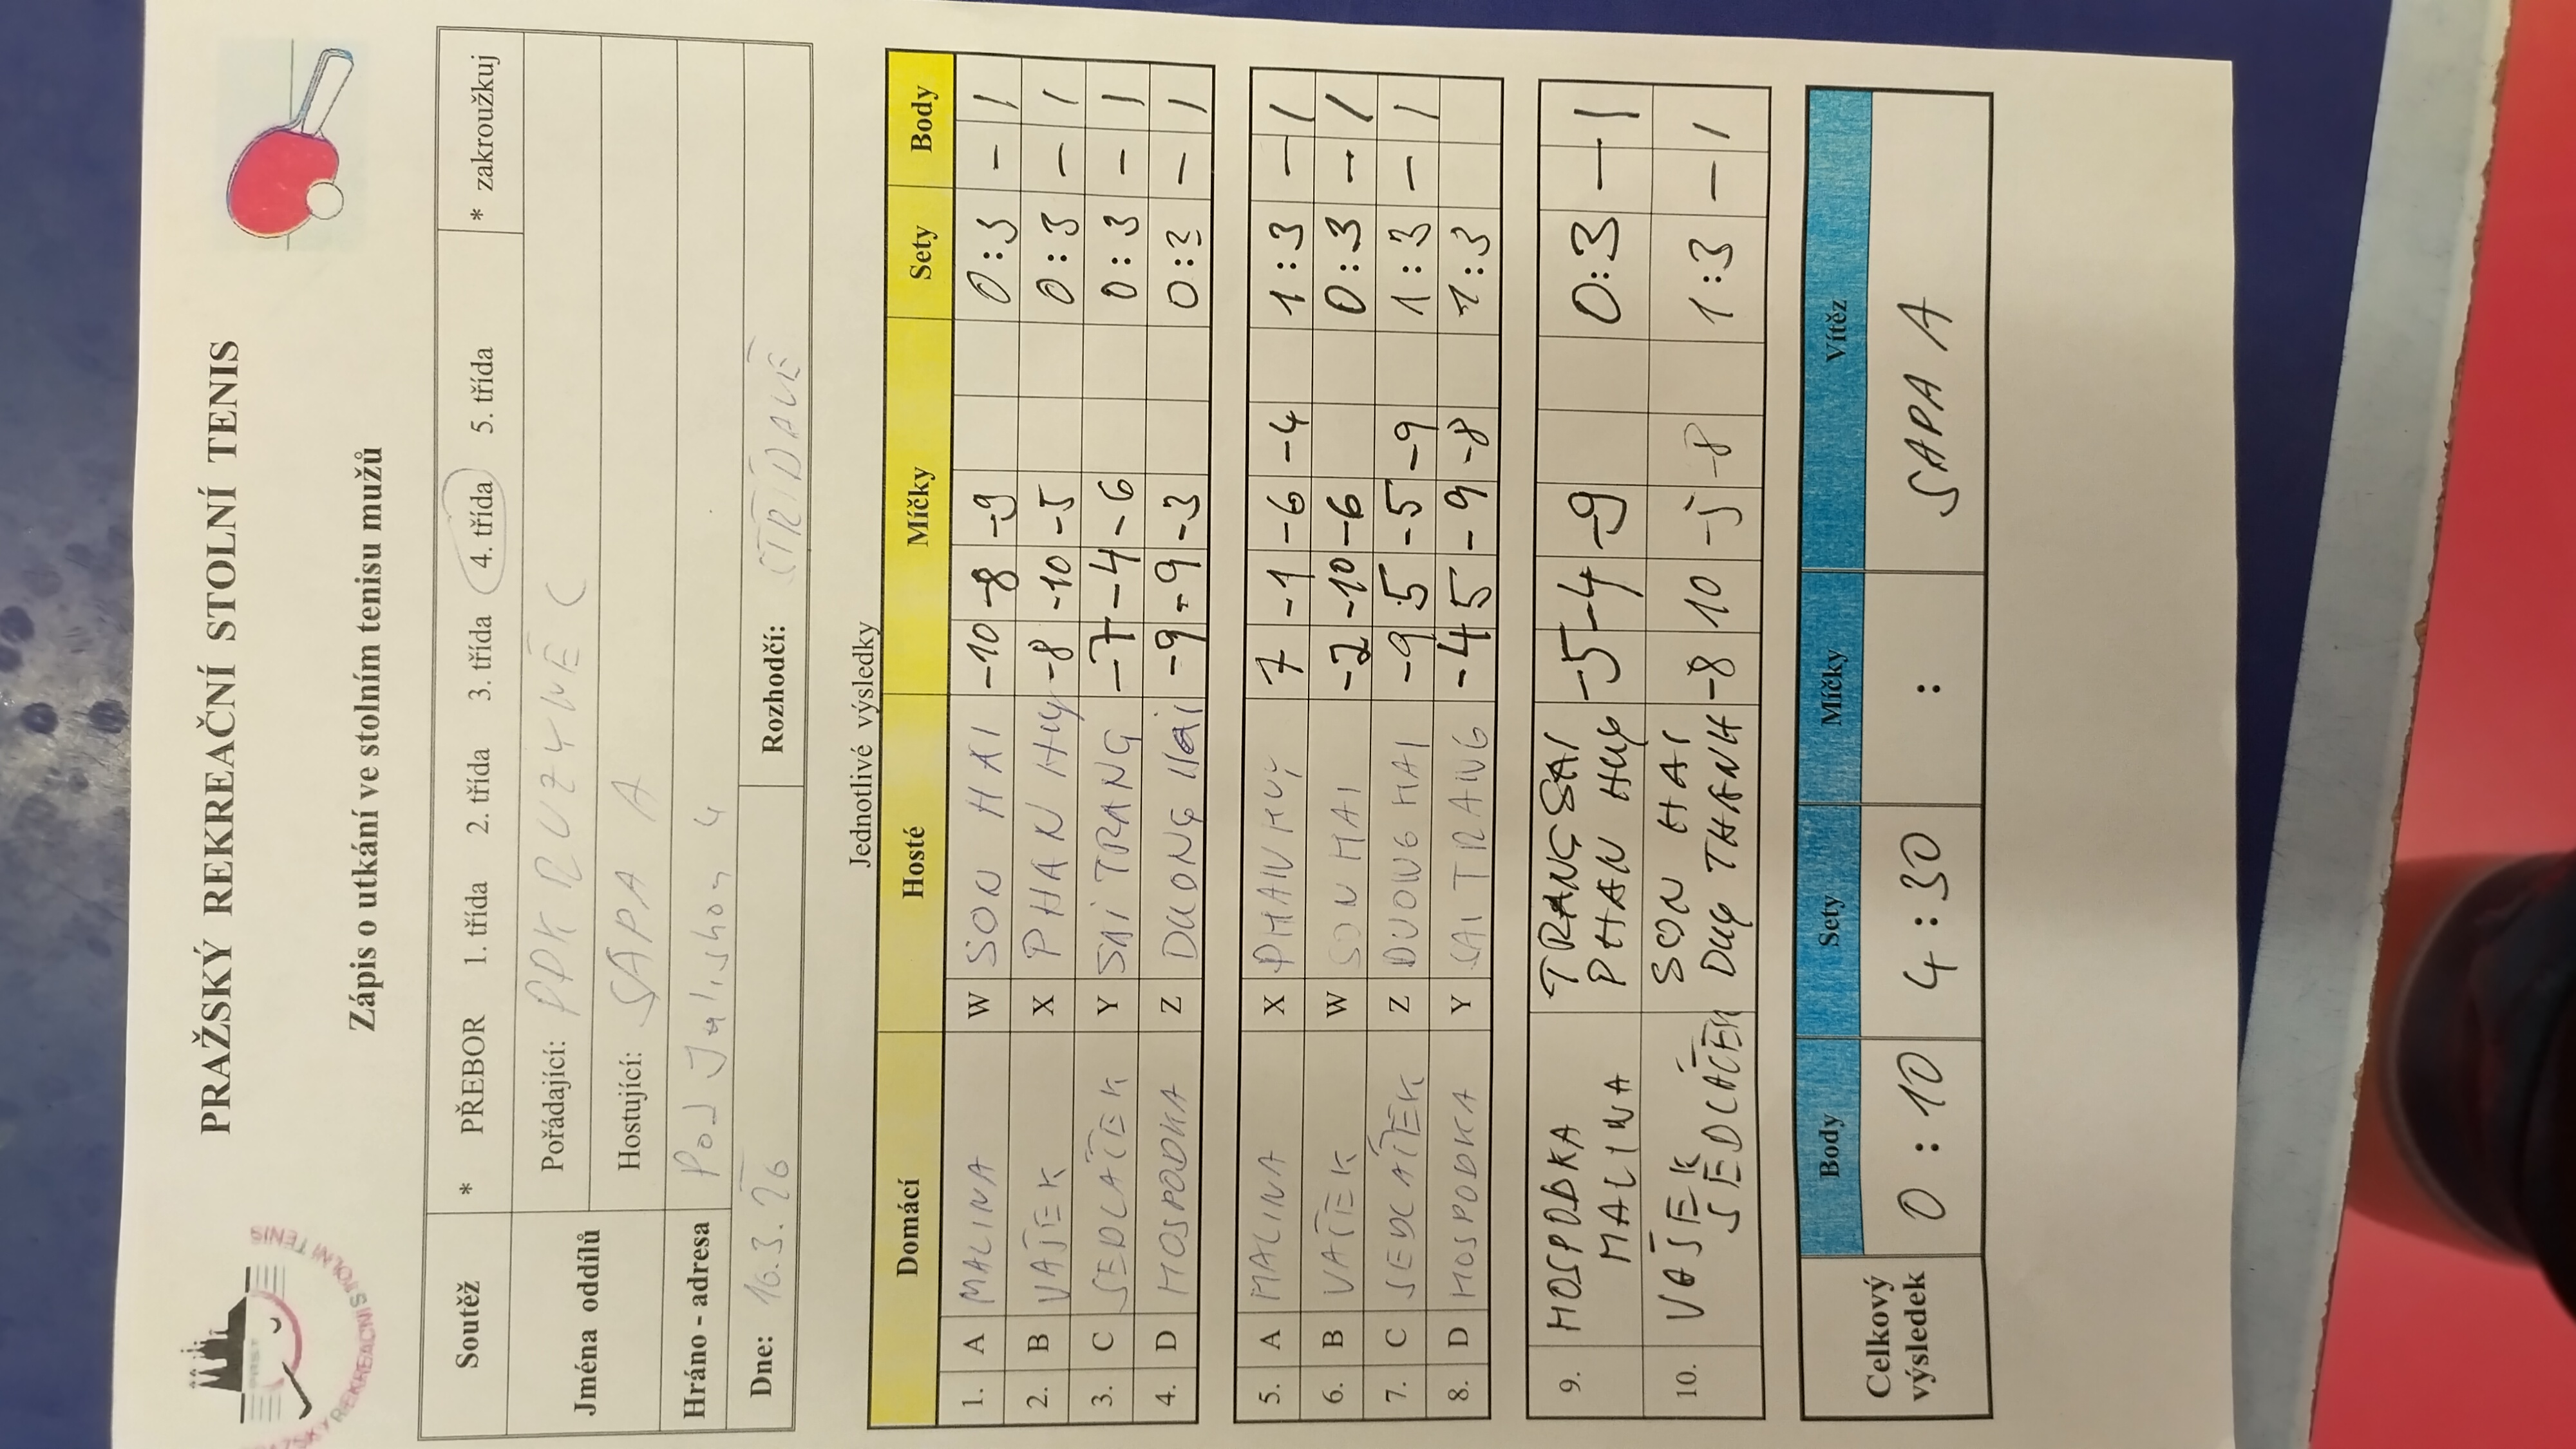 PRAŽSKÝ REKREAČNÍ STOLNÍ TENIS
Zápis o utkání ve stolním tenisu mužů
Soutěž * PŘEBOR 1. třída 2. třída 3. třída 4. třída 5. třída * zakroužkuj
Jména oddílů Pořádající: PPK RUZYNĚ C
Hostující: SAPA A
Hráno - adresa Pod Juliskou 4
Dne: 16.3.26 Rozhodčí: STŘÍDAVĚ
Jednotlivé výsledky
Domácí Hosté Míčky Sety Body
1. A MALINA W SON HAI -10 -8 -9 0:3 - 1
2. B VAŠEK X PHAN HUY -8 -10 -5 0:3 - 1
3. C SEDLÁČEK Y SAI TRANG -7 -4 -6 0:3 - 1
4. D HOSPODKA Z DUONG HAI -9 -9 -3 0:3 - 1
5. A MALINA X PHAN HUY 7 -1 -6 -4 1:3 - 1
6. B VAŠEK W SON HAI -2 -10 -6 0:3 - 1
7. C SEDLÁČEK Z DUONG HAI -9 5 -5 -9 1:3 - 1
8. D HOSPODKA Y SAI TRANG -4 5 -9 -8 1:3
9. HOSPODKA TRANG SAI -5 -4 -9 0:3 - 1
MALINA PHAN HUY
10. VAŠEK SON HAI -8 10 -5 -8 1:3 - 1
SEDLÁČEK DUY THANH
Celkový výsledek Body Sety Míčky Vítěz
0 : 10 4 : 30 : SAPA A